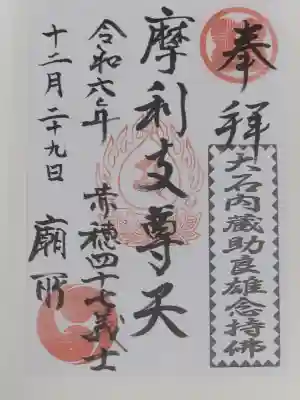 奉拝
大石内蔵助良雄念持佛
摩利支尊天
令和六年 赤穂四十七義士
十二月二十九日 廟所